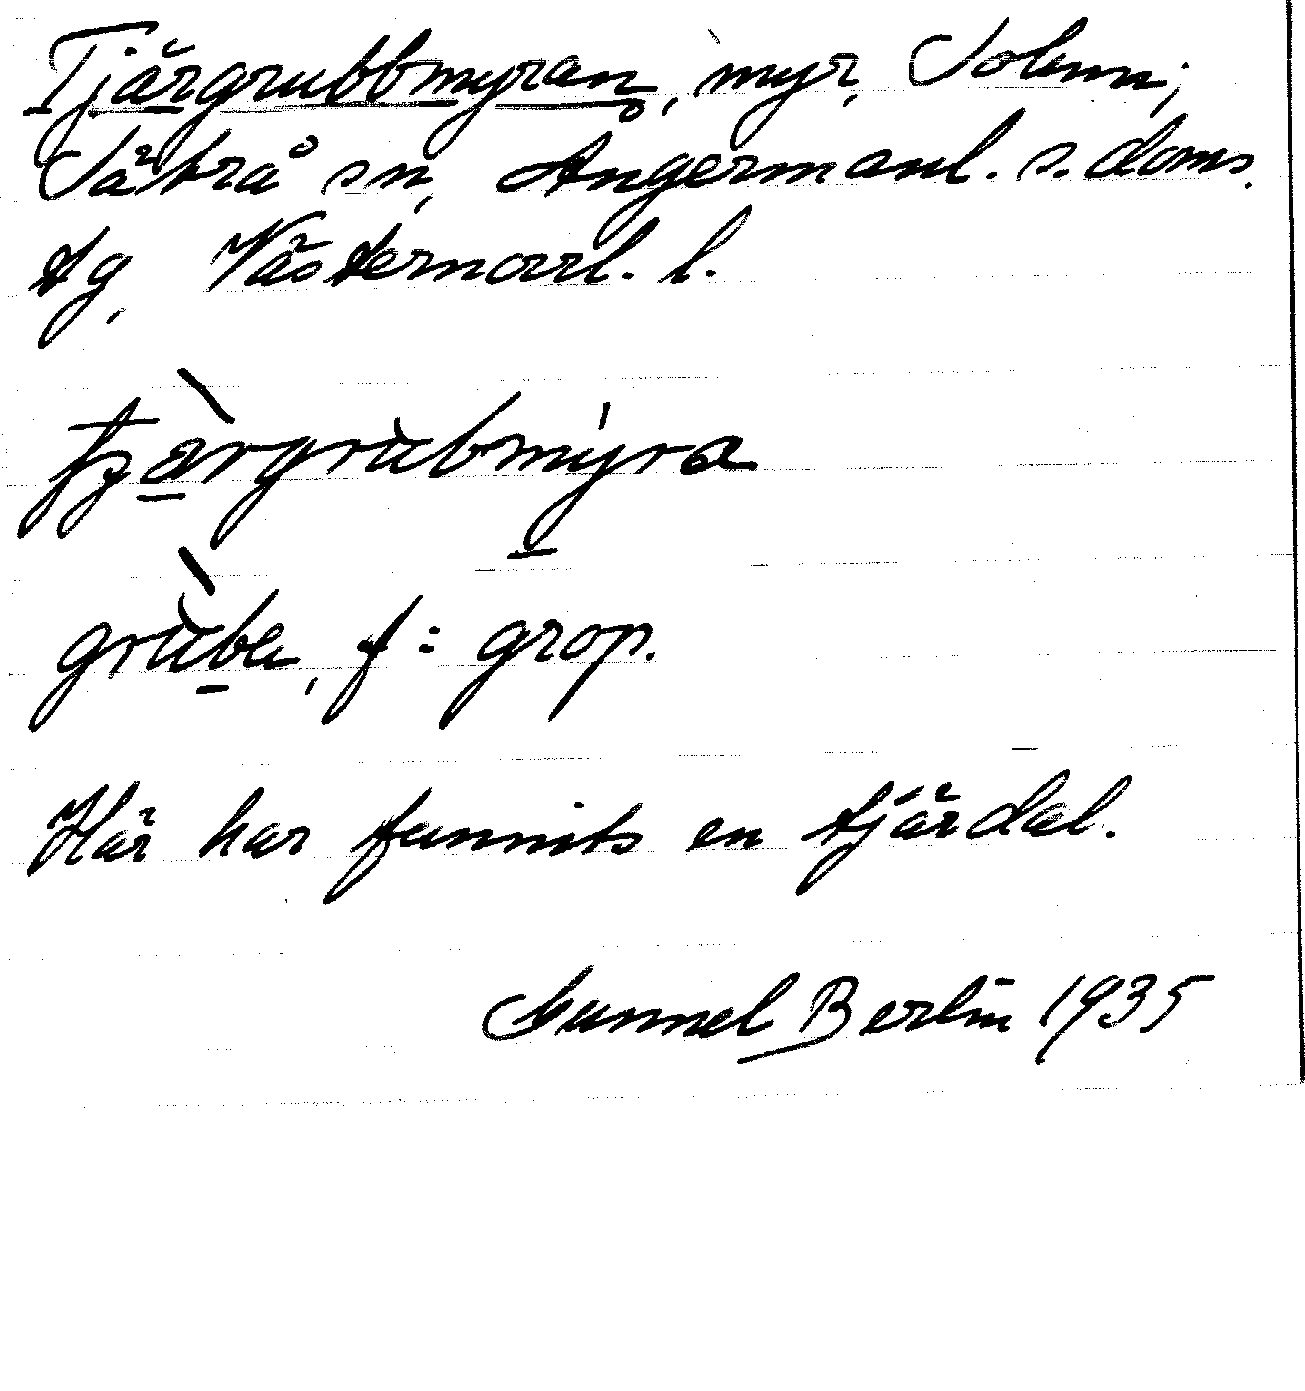 Tjärgrubbmyran, myr, Solum;
Säbrå sn, Ångermanl. s. doms.
tg, Västernorrl. l.
tjärgrubmyra
gruba, f = grop.
Här har funnits en tjärdal.
Gunnel Berlin 1935